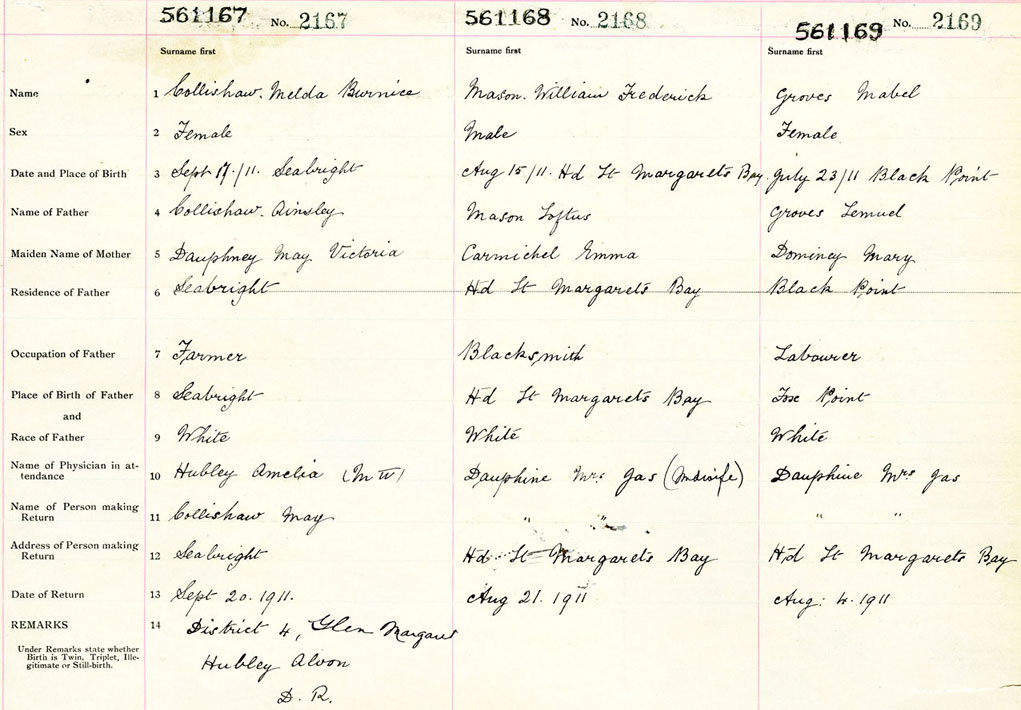 561167 No. 2167 561168 No. 2168 561169 No. 2169
Surname first Surname first Surname first
Name 1 Collishaw. Melda Burnice Mason. William Frederick Groves Mabel
Sex 2 Female Male Female
Date and Place of Birth 3 Sept 17./11. Seabright Aug 15/11. Hd St Margarets Bay. July 23/11 Black Point
Name of Father 4 Collishaw. Ainsley Mason Loftus Groves Lemuel
Maiden Name of Mother 5 Dauphney May Victoria Carmichel Emma Dominey Mary
Residence of Father 6 Seabright Hd St Margarets Bay Black Point
Occupation of Father 7 Farmer Blacksmith Labourer
Place of Birth of Father 8 Seabright Hd St Margarets Bay Fox Point
and
Race of Father 9 White White White
Name of Physician in at-
tendance 10 Hubley Amelia (M W) Dauphine Mrs Gas (Midwife) Dauphine Mrs Gas
Name of Person making
Return 11 Collishaw May " " " "
Address of Person making
Return 12 Seabright Hd St Margarets Bay Hd St Margarets Bay
Date of Return 13 Sept 20. 1911. Aug 21. 1911 Aug: 4. 1911
REMARKS 14 District 4, Glen Margaret
Under Remarks state whether
Birth is Twin. Triplet, Ille-
gitimate or Still-birth.
Hubley Alvon
D. R.